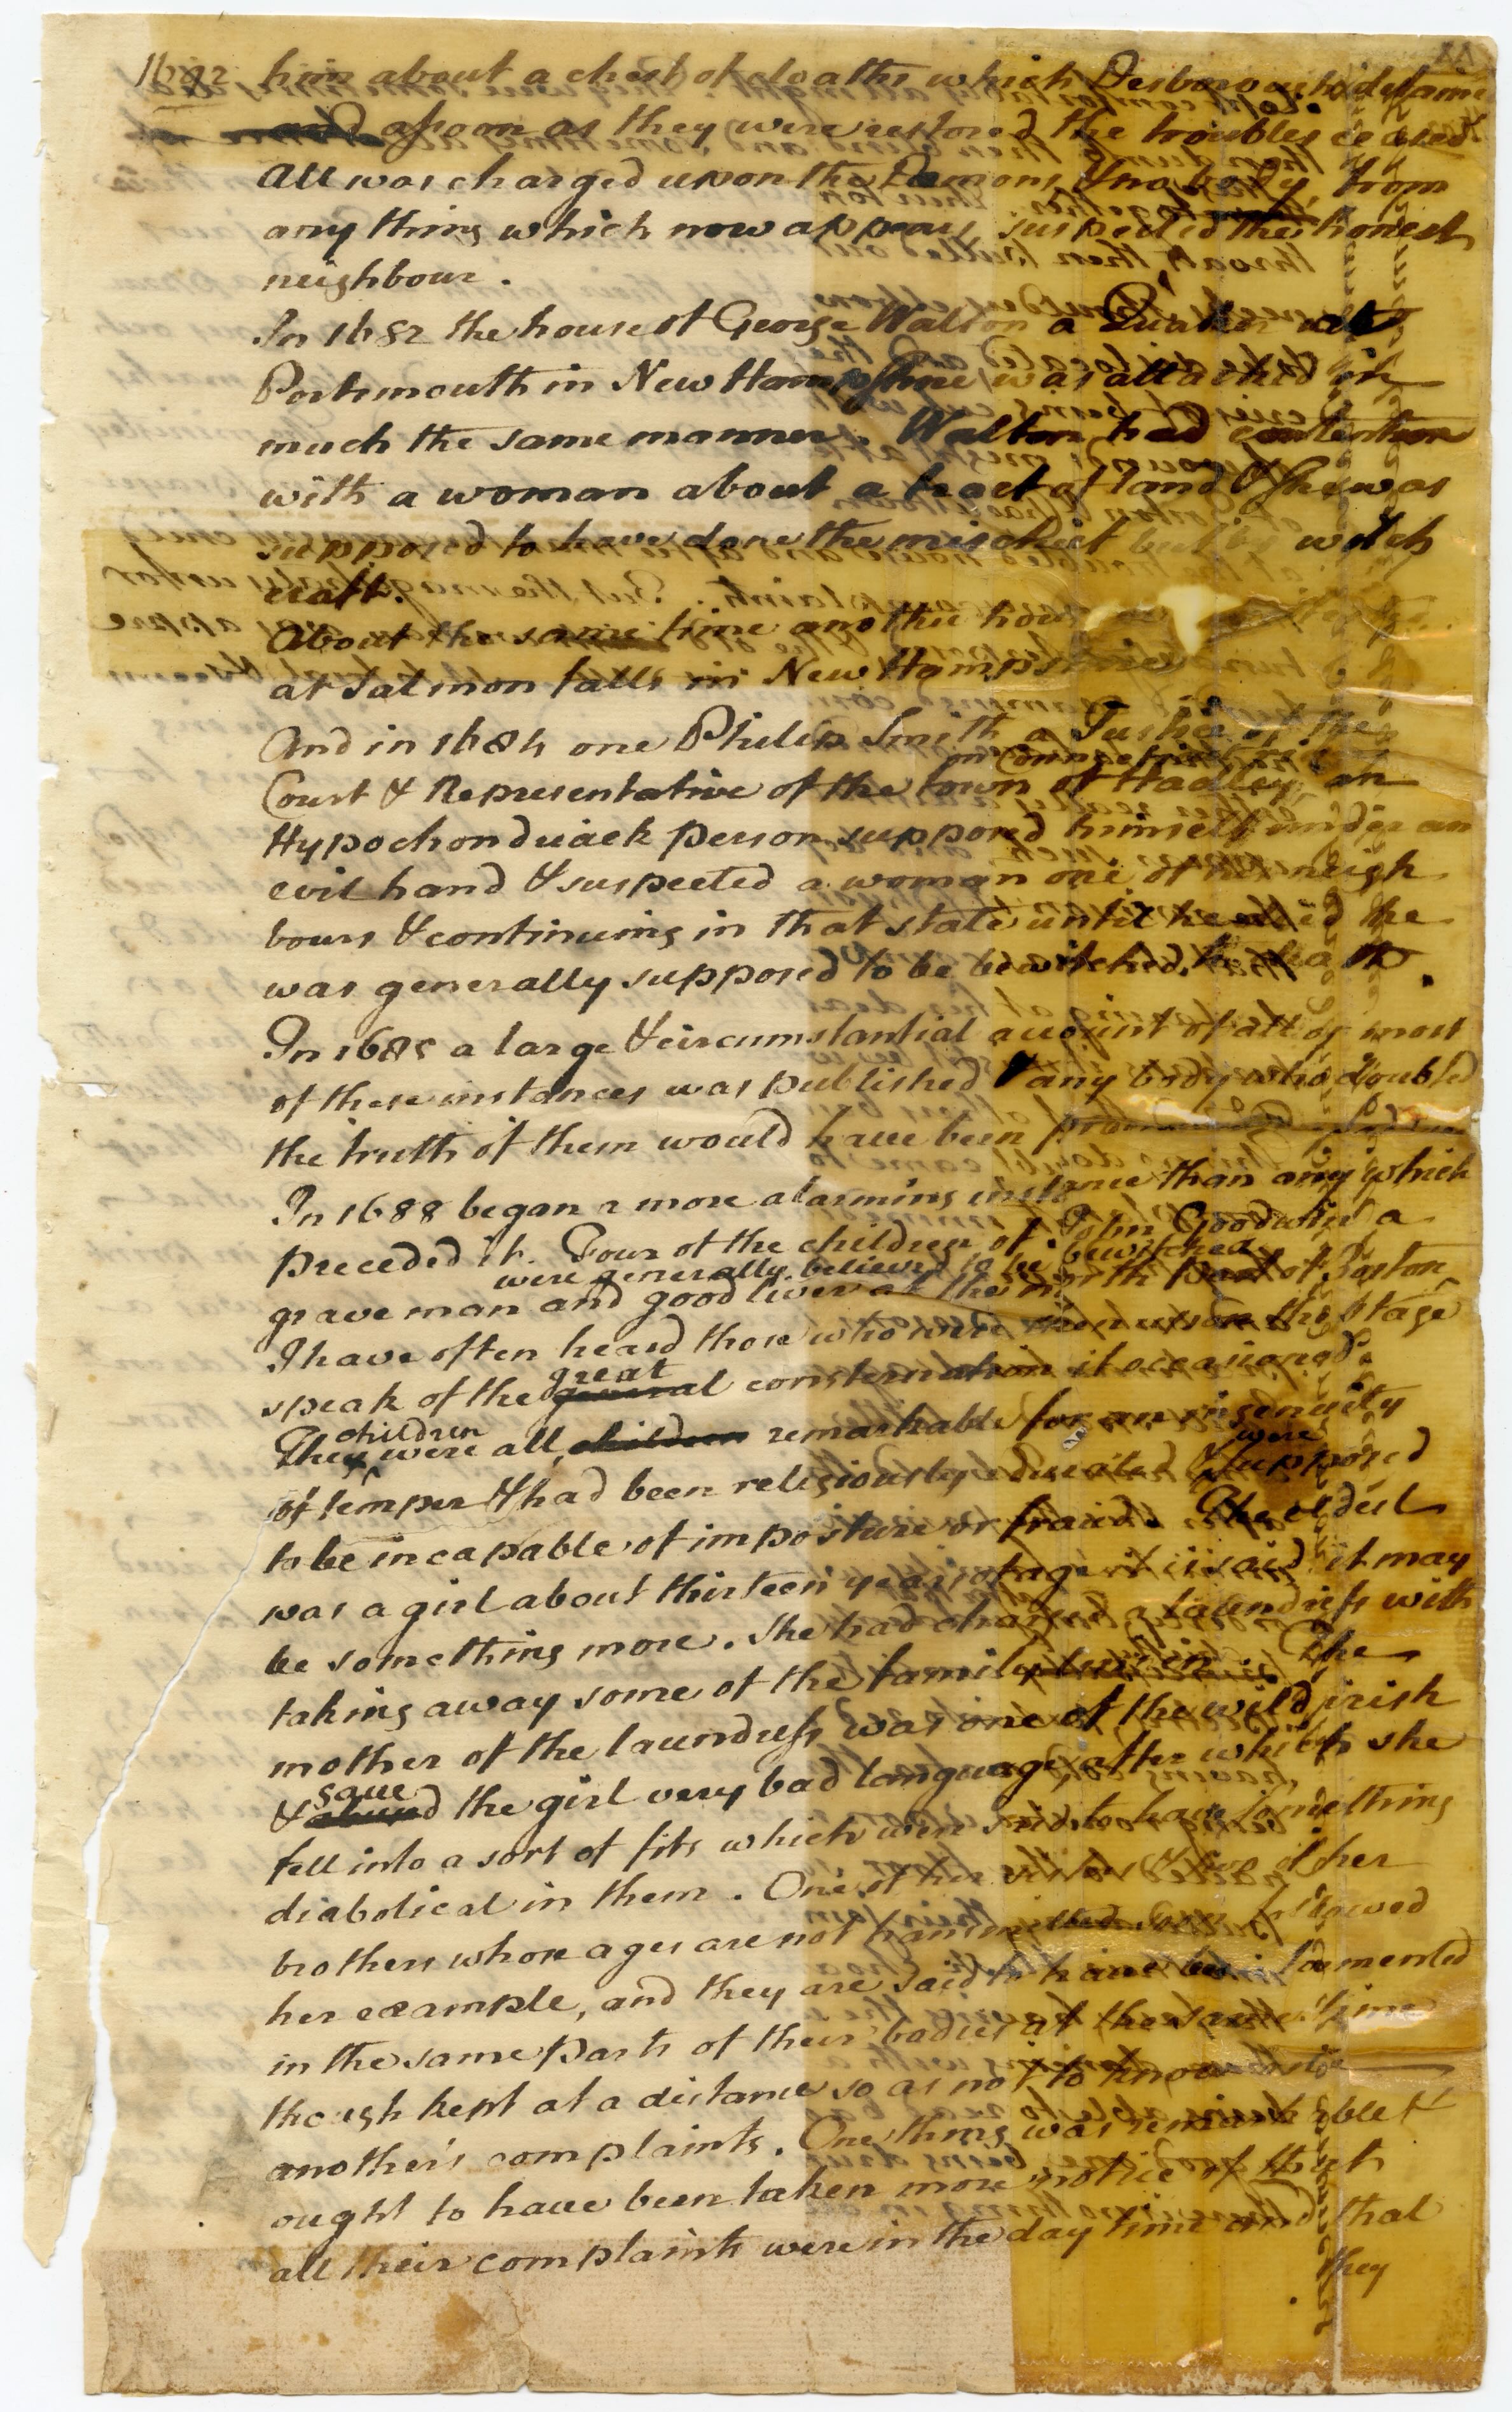 1692 him about a chest of cloaths which Desborough detained
and assoon as they were restored the troubles ceased
All was charged upon the Demons & no body, from
any thing which now appears, suspected the honest
neighbour.
In 1682 the house of George Walton a Quaker at
Portsmouth in New Hampshire was attacked in
much the same manner. Walton had contention
with a woman about a tract of land & she was
supposed to have done the mischief but by witch
craft.
About the same time another house
at Salmon falls in New Hampshire
And in 1684 one Philip Smith a Justice of the
on Connecticut river
Court & Representative of the town of Hadley, an
Hypochondriack person supposed himself under an
evil hand & suspected a woman one of his neigh
bours & continuing in that state until he died he
was generally supposed to be bewitched to death.
In 1685 a large & circumstantial account of all or most
of these instances was published & any body who doubted
the truth of them would have been
In 1688 began a more alarming instance than any which
preceded it. Four of the children of John Goodwin a
were generally believed to be bewitched
grave man and good liver at the north part of Boston
I have often heard those who were then upon the stage
great
speak of the general consternation it occasioned.
children
They were all children remarkable for an ingenuity
were
of temper & had been religiously educated & supposed
to be incapable of imposture or fraud. The eldest
was a girl about thirteen years of age it is said, it may
be something more. She had charged a laundress with
taking away some of the family linnen. The
mother of the laundress was one of the wild irish
gave
& abused the girl very bad language, after which she
fell into a sort of fits which were said to have something
diabolical in them. One of her sisters & two of her
brothers whose ages are not transmitted soon followed
her example, and they are said to have been tormented
in the same parts of their bodies at the same time
though kept at a distance so as not to know one
another's complaints. One thing was remarkable &
ought to have been taken more notice of that
all their complaints were in the day time and that
they